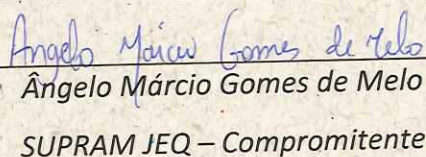 Angelo Márcio Gomes de Melo
Ângelo Márcio Gomes de Melo
SUPRAM JEQ – Compromitente